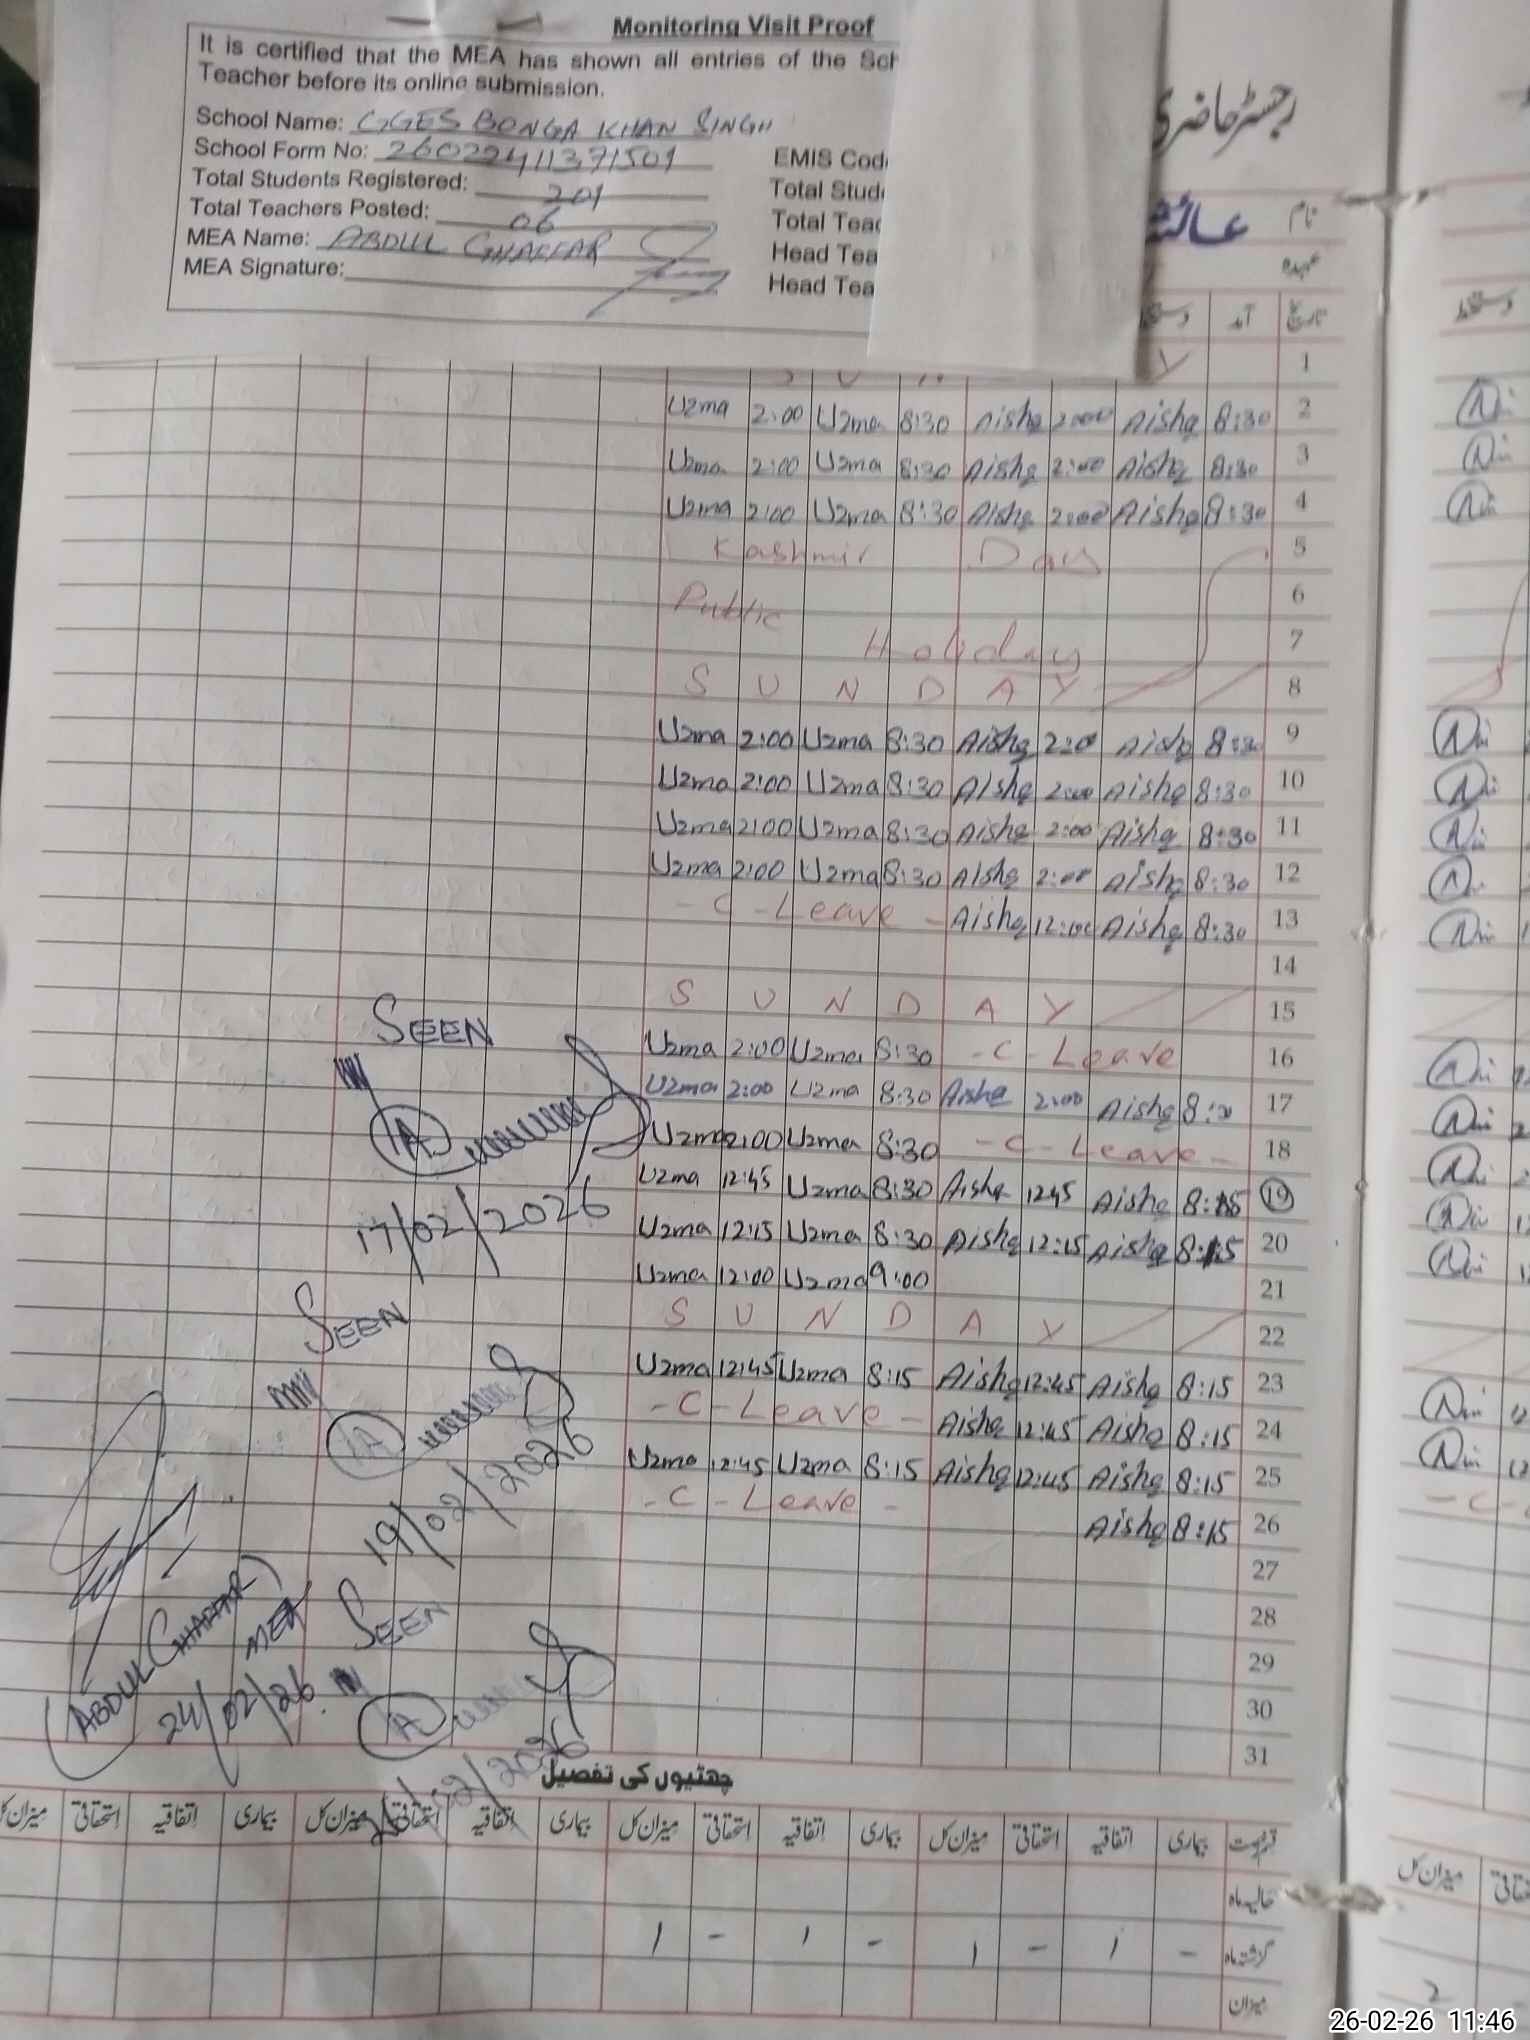 Monitoring Visit Proof
It is certified that the MEA has shown all entries of the Sch
Teacher before its online submission.
School Name: GGES BONGA KHAN SINGH
School Form No: 26022411371501
EMIS Cod
Total Students Registered: 201
Total Stud
Total Teachers Posted: 06
Total Teac
MEA Name: ABDUL GHAFFAR
Head Tea
MEA Signature:
Head Tea
رجسٹر حاضری
نام
عہدہ
تاریخ آمد
1
Uzma 2:00 Uzma 8:30 Aisha 2:00 Aisha 8:30 2
Uzma 2:00 Uzma 8:30 Aisha 2:00 Aisha 8:30 3
Uzma 2:00 Uzma 8:30 Aisha 2:00 Aisha 8:30 4
Kashmir Day 5
Public 6
Holiday 7
S U N D A Y 8
Uzma 2:00 Uzma 8:30 Aisha 2:00 Aisha 8:30 9
Uzma 2:00 Uzma 8:30 Aisha 2:00 Aisha 8:30 10
Uzma 2:00 Uzma 8:30 Aisha 2:00 Aisha 8:30 11
Uzma 2:00 Uzma 8:30 Aisha 2:00 Aisha 8:30 12
- C - Leave - Aisha 12:00 Aisha 8:30 13
14
S U N D A Y 15
Uzma 2:00 Uzma 8:30 - C - Leave 16
Uzma 2:00 Uzma 8:30 Aisha 2:00 Aisha 17
Uzma 2:00 Uzma 8:30 - C - Leave - 18
Uzma 12:45 Uzma 8:30 Aisha 12:45 Aisha 8:15 19
Uzma 12:15 Uzma 8:30 Aisha 12:15 Aisha 8:15 20
Uzma 12:00 Uzma 9:00 21
S U N D A Y 22
Uzma 12:45 Uzma 8:15 Aisha 12:45 Aisha 8:15 23
- C - Leave - Aisha 12:45 Aisha 8:15 24
Uzma 12:45 Uzma 8:15 Aisha 12:45 Aisha 8:15 25
- C - Leave - Aisha 8:15 26
27
28
29
30
31
SEEN
17/02/2026
SEEN
19/02/2026
SEEN
ABDUL GHAFFAR)
MEA
24/02/26
چھٹیوں کی تفصیل
فہرست بیماری اتفاقیہ استحقاقی میزان کل بیماری اتفاقیہ استحقاقی میزان کل بیماری اتفاقیہ استحقاقی میزان کل بیماری اتفاقیہ استحقاقی میزان کل
حالیہ ماہ
گزشتہ ماہ - 1 - 1 - 1 - 1
میزان
دستخط
میزان کل
2
26-02-26 11:46